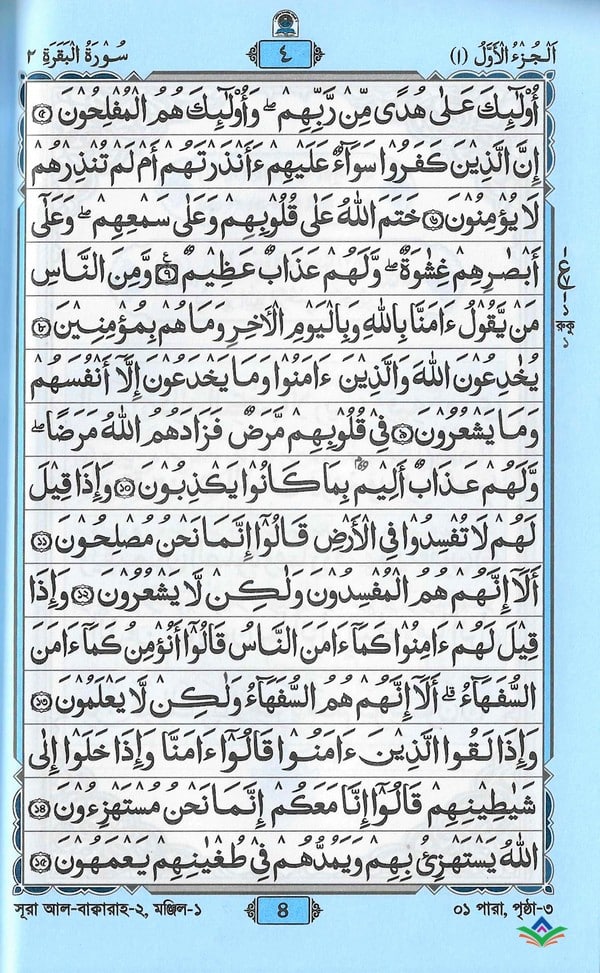 اَلْجُزْءُ الْأَوَّلُ (١)
٤
سُوْرَةُ الْبَقَرَةِ ٢
أُوْلٰٓئِكَ عَلٰى هُدًى مِّنْ رَّبِّهِمْ ۖ وَأُوْلٰٓئِكَ هُمُ الْمُفْلِحُوْنَ ৫
إِنَّ الَّذِيْنَ كَفَرُوْا سَوَآءٌ عَلَيْهِمْ ءَأَنْذَرْتَهُمْ أَمْ لَمْ تُنْذِرْهُمْ
لَا يُؤْمِنُوْنَ ৬ خَتَمَ اللهُ عَلٰى قُلُوْبِهِمْ وَعَلٰى سَمْعِهِمْ ۖ وَعَلٰٓى
أَبْصٰرِهِمْ غِشٰوَةٌ ۖ وَّلَهُمْ عَذَابٌ عَظِيْمٌ ৭ وَمِنَ النَّاسِ
مَنْ يَّقُوْلُ ءَامَنَّا بِاللهِ وَبِالْيَوْمِ الْأٰخِرِ وَمَا هُمْ بِمُؤْمِنِيْنَ ৮
يُخٰدِعُوْنَ اللهَ وَالَّذِيْنَ ءَامَنُوْا وَمَا يَخْدَعُوْنَ إِلَّآ أَنْفُسَهُمْ
وَمَا يَشْعُرُوْنَ ৯ فِيْ قُلُوْبِهِمْ مَّرَضٌ فَزَادَهُمُ اللهُ مَرَضًا ۖ
وَّلَهُمْ عَذَابٌ أَلِيْمٌ بِمَا كَانُوْا يَكْذِبُوْنَ ১০ وَإِذَا قِيْلَ
لَهُمْ لَا تُفْسِدُوْا فِي الْأَرْضِ قَالُوْٓا إِنَّمَا نَحْنُ مُصْلِحُوْنَ ১১
أَلَآ إِنَّهُمْ هُمُ الْمُفْسِدُوْنَ وَلٰكِنْ لَّا يَشْعُرُوْنَ ১২ وَإِذَا
قِيْلَ لَهُمْ ءَامِنُوْا كَمَآ ءَامَنَ النَّاسُ قَالُوْٓا أَنُؤْمِنُ كَمَآ ءَامَنَ
السُّفَهَآءُ ۗ أَلَآ إِنَّهُمْ هُمُ السُّفَهَآءُ وَلٰكِنْ لَّا يَعْلَمُوْنَ ১৩
وَإِذَا لَقُوا الَّذِيْنَ ءَامَنُوْا قَالُوْٓا ءَامَنَّا وَإِذَا خَلَوْا إِلٰى
شَيٰطِيْنِهِمْ قَالُوْٓا إِنَّا مَعَكُمْ إِنَّمَا نَحْنُ مُسْتَهْزِءُوْنَ ১৪
اللهُ يَسْتَهْزِئُ بِهِمْ وَيَمُدُّهُمْ فِيْ طُغْيٰنِهِمْ يَعْمَهُوْنَ ১৫
রুকু
১
সূরা আল-বাক্বারাহ-২, মঞ্জিল-১
8
০১ পারা, পৃষ্ঠা-৩